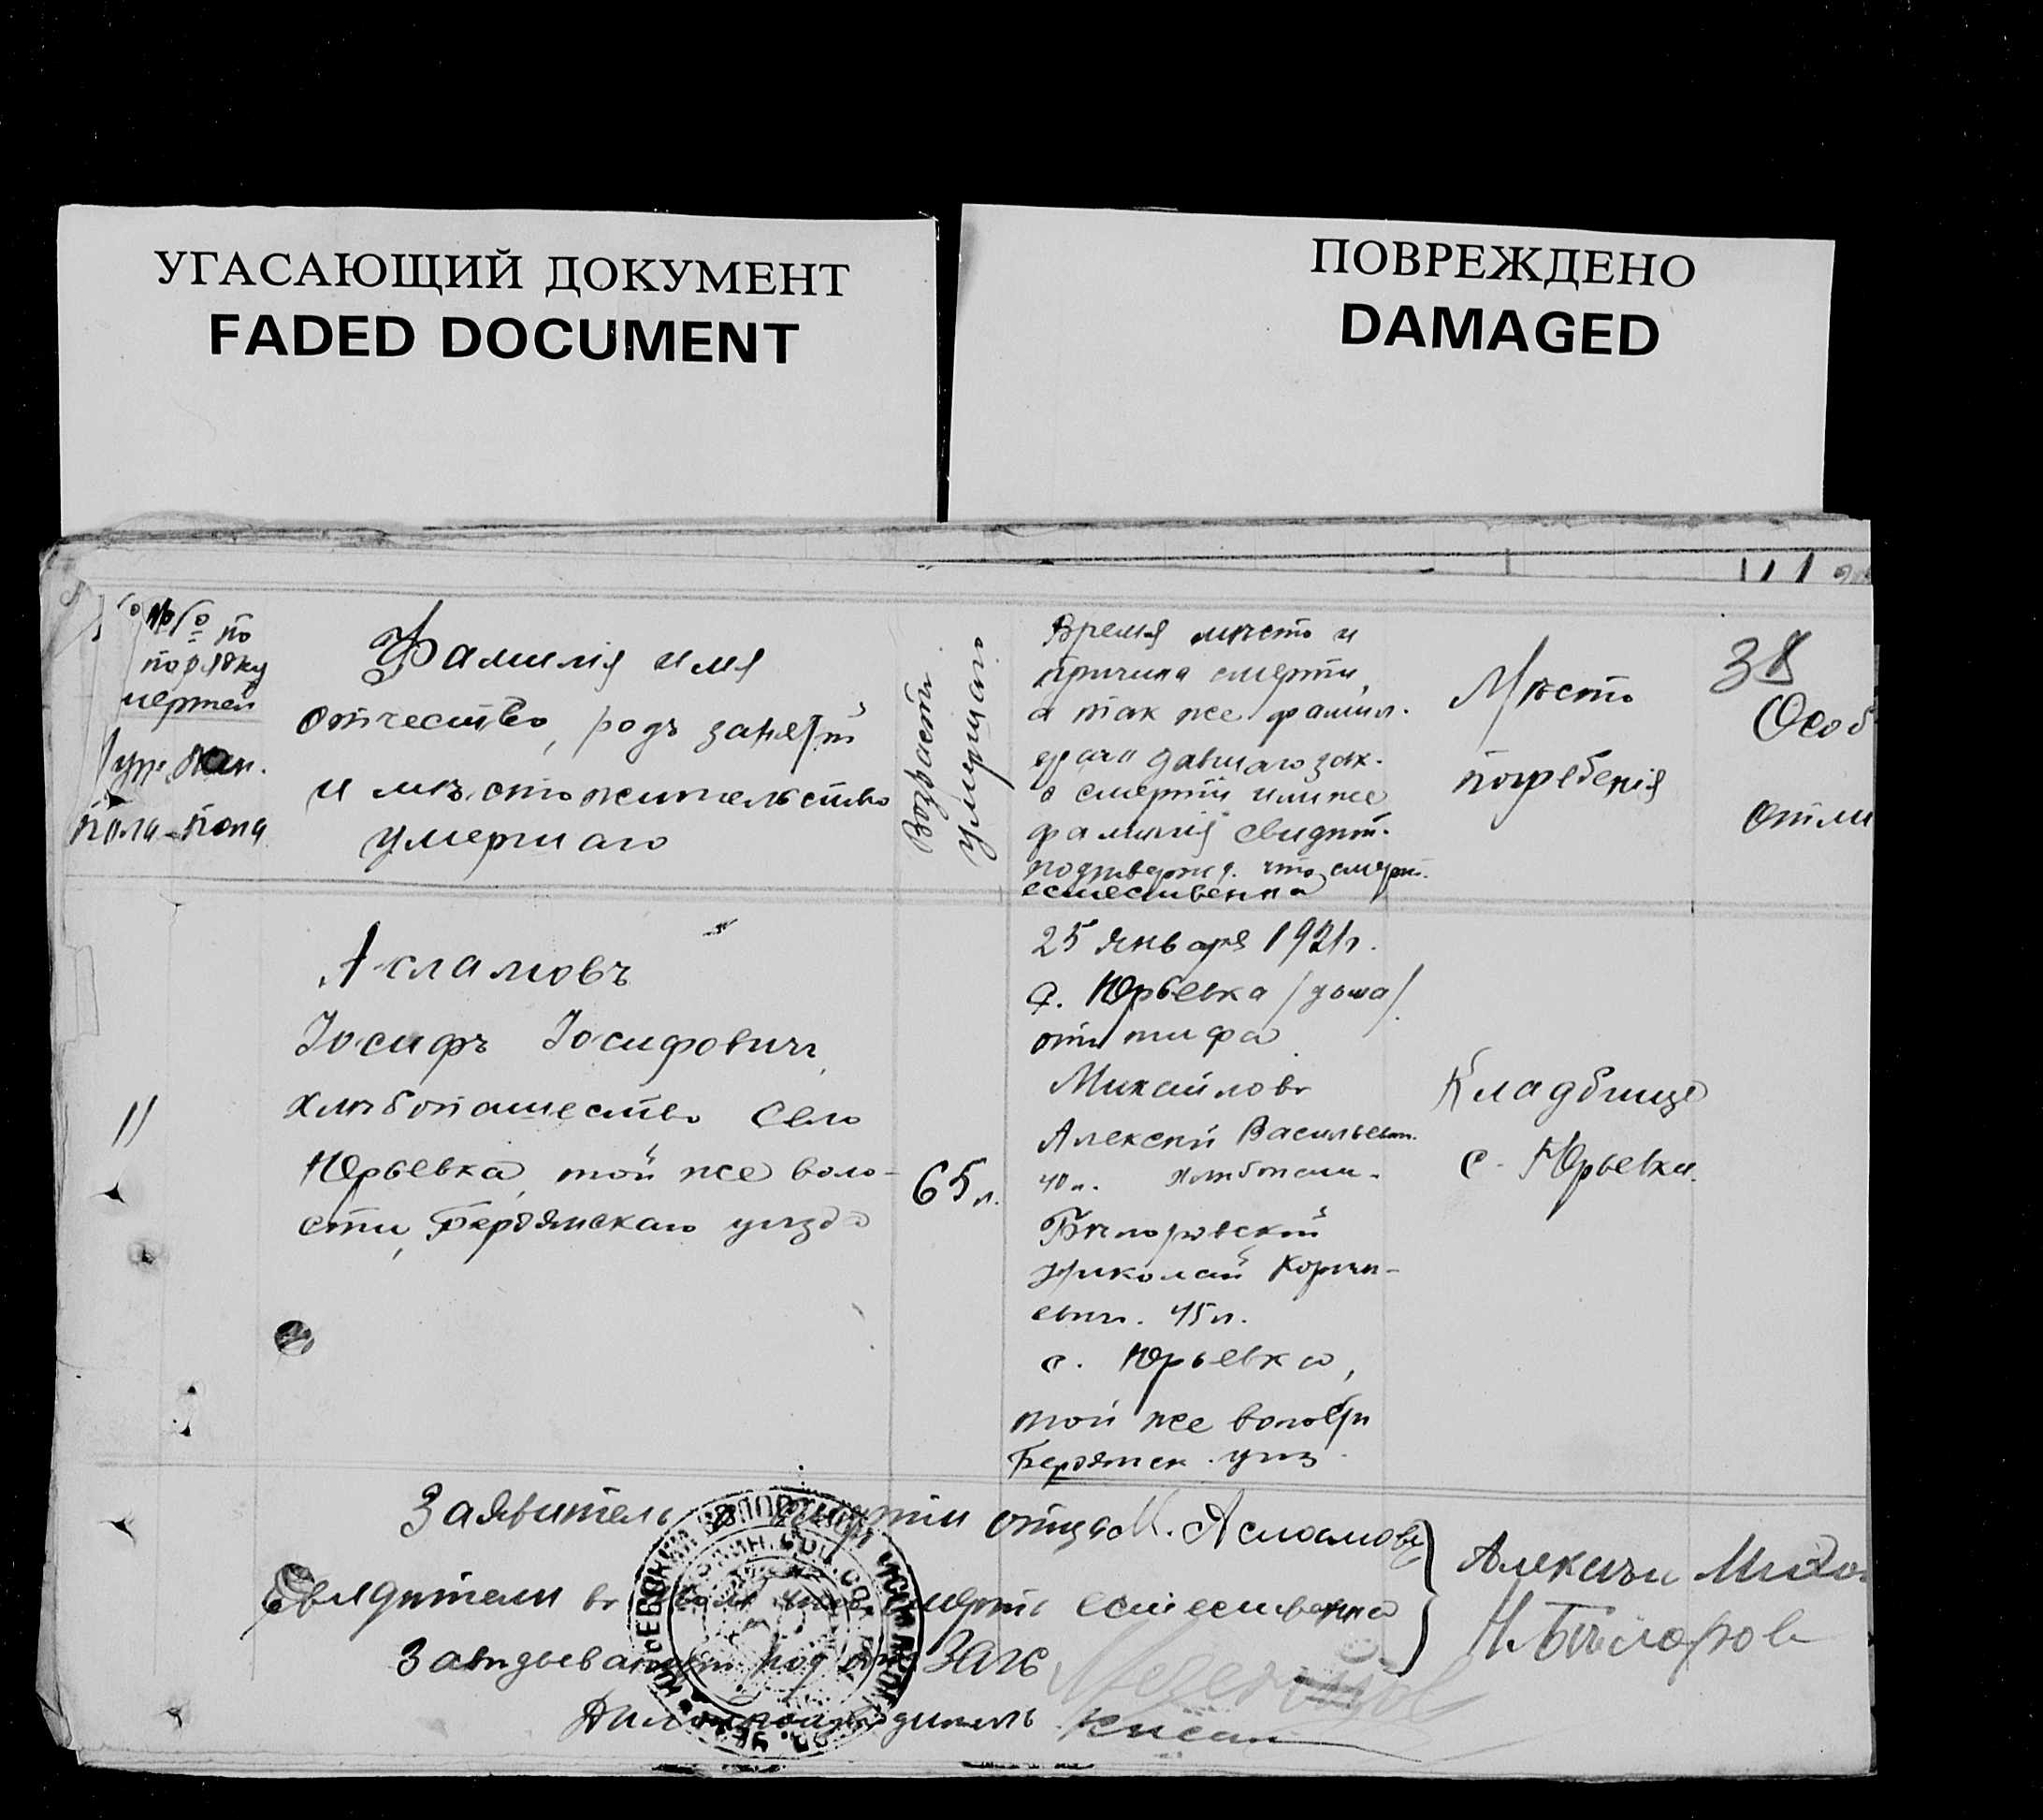 УГАСАЮЩИЙ ДОКУМЕНТ
FADED DOCUMENT
ПОВРЕЖДЕНО
DAMAGED
№ по
порядку
мертей
Муж. Жен.
пола - пола
Фамилія имя
отчество, родъ занятій
и мѣсто жительство
умершаго
Возрастъ
умершаго
Время мѣсто и
причина смерти,
а так же фамил.
врача давшаго зак.
о смерти или же
фамилія свидѣт.
подтвержд. что смерт.
естественна
Мѣсто
погребенія
38
Особ
отм
11
Асламовъ
Іосифъ Іосифовичъ,
хлѣбопашество Село
Юрьевка, той же воло-
сти, Бердянскаго уѣзда
65 л.
25 Января 1921 г.
с. Юрьевка /дома/
отъ тифа
Михайловъ
Алексѣй Васильевич.
40 л. Хлѣбопаш.
Бѣлоровский
Николай Корнѣ-
евич. 45 л.
с. Юрьевка,
той же волости
Бердянск. уѣз.
Кладбище
с. Юрьевки.
Заявитель о смерти отца И. Асламовъ
Свидѣтели въ том что смерть естественна
Алексѣй Михай
Н. Бѣлоров
Завѣдывающій под отд. ЗАГС
Дѣлопроизводитель